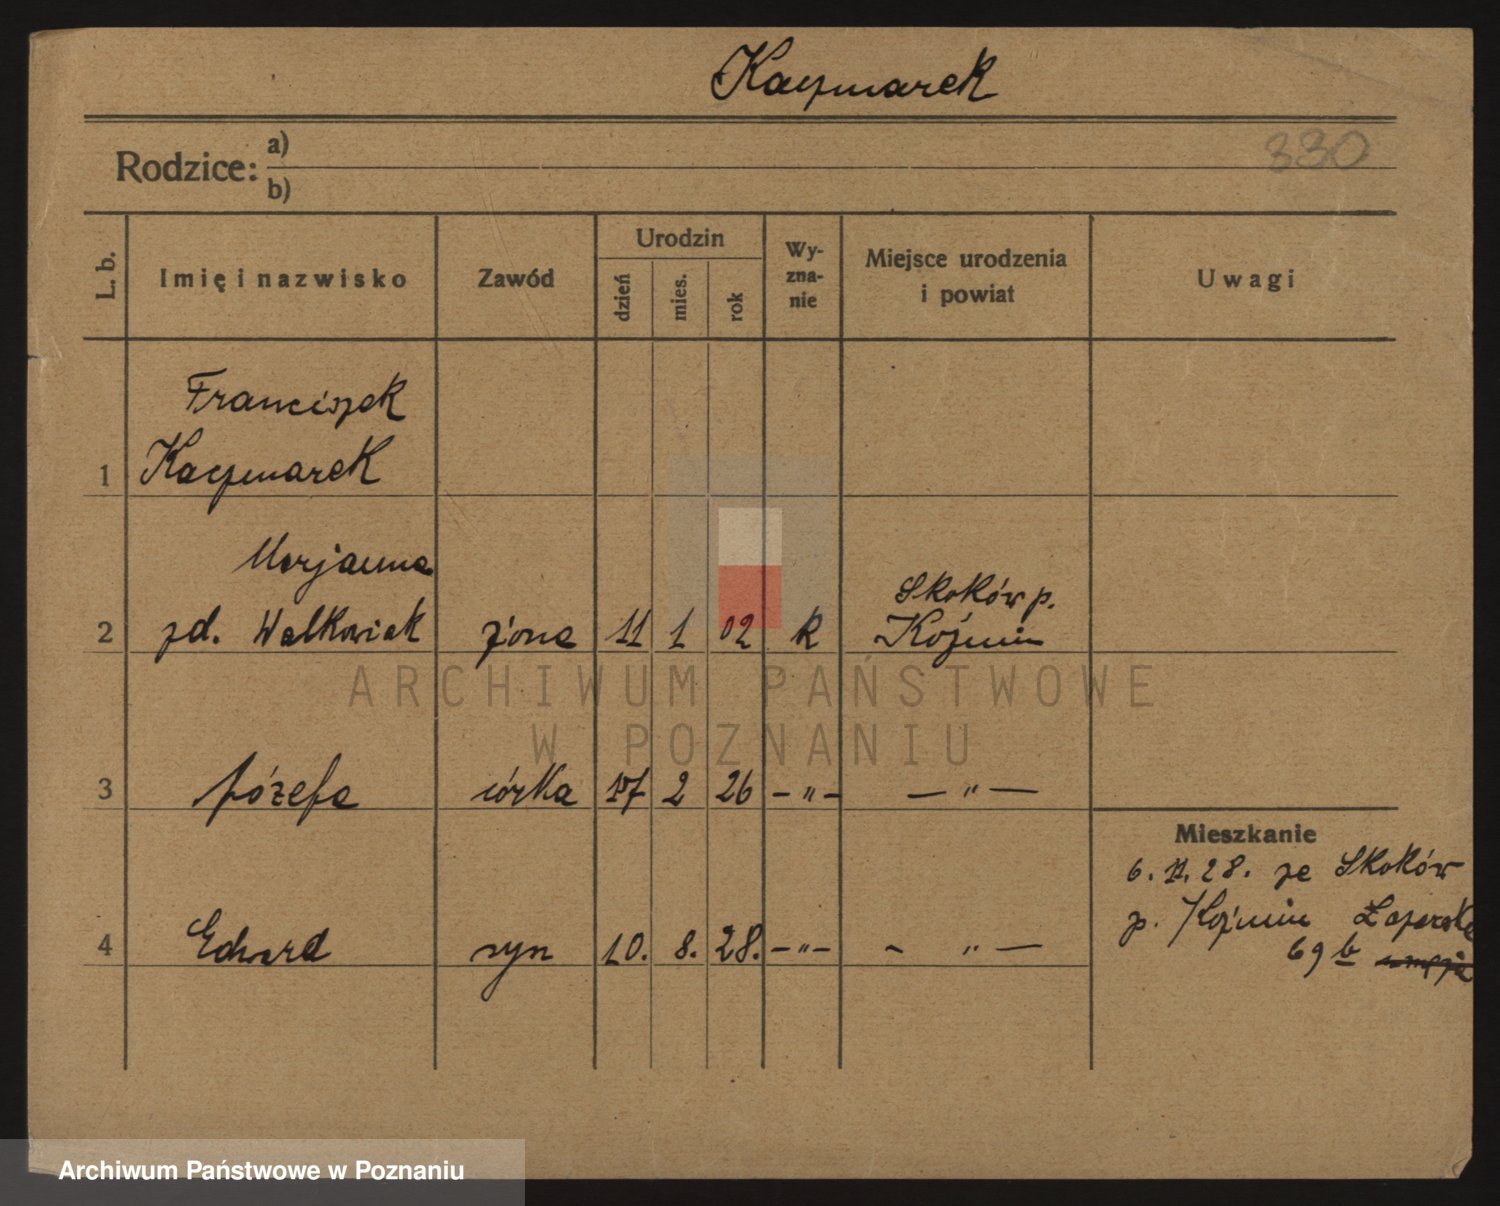 Kaczmarek
330
Rodzice: a)
b)
L. b.
Imię i nazwisko
Zawód
Urodzin
dzień
mies.
rok
Wy-
zna-
nie
Miejsce urodzenia
i powiat
Uwagi
Franciszek
1 Kaczmarek
Marjanna
2 zd. Walkowiak żona 11 1 02 k Skoków p.
Koźmin
3 Józefa córka 17 2 26 – „ – – „ –
Mieszkanie
6. 11. 28. ze Skoków
p. Koźmin
4 Edward syn 10. 8. 28. – „ – – „ –
69 b
ARCHIWUM PAŃSTWOWE
W POZNANIU
Archiwum Państwowe w Poznaniu